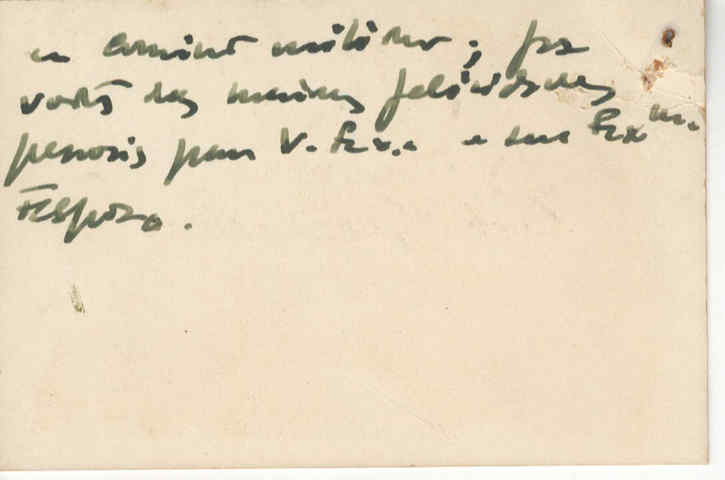 e caminho militar; faz
votos das maiores felicidades
pessoais para V. Ex.a e sua Exma.
Esposa.